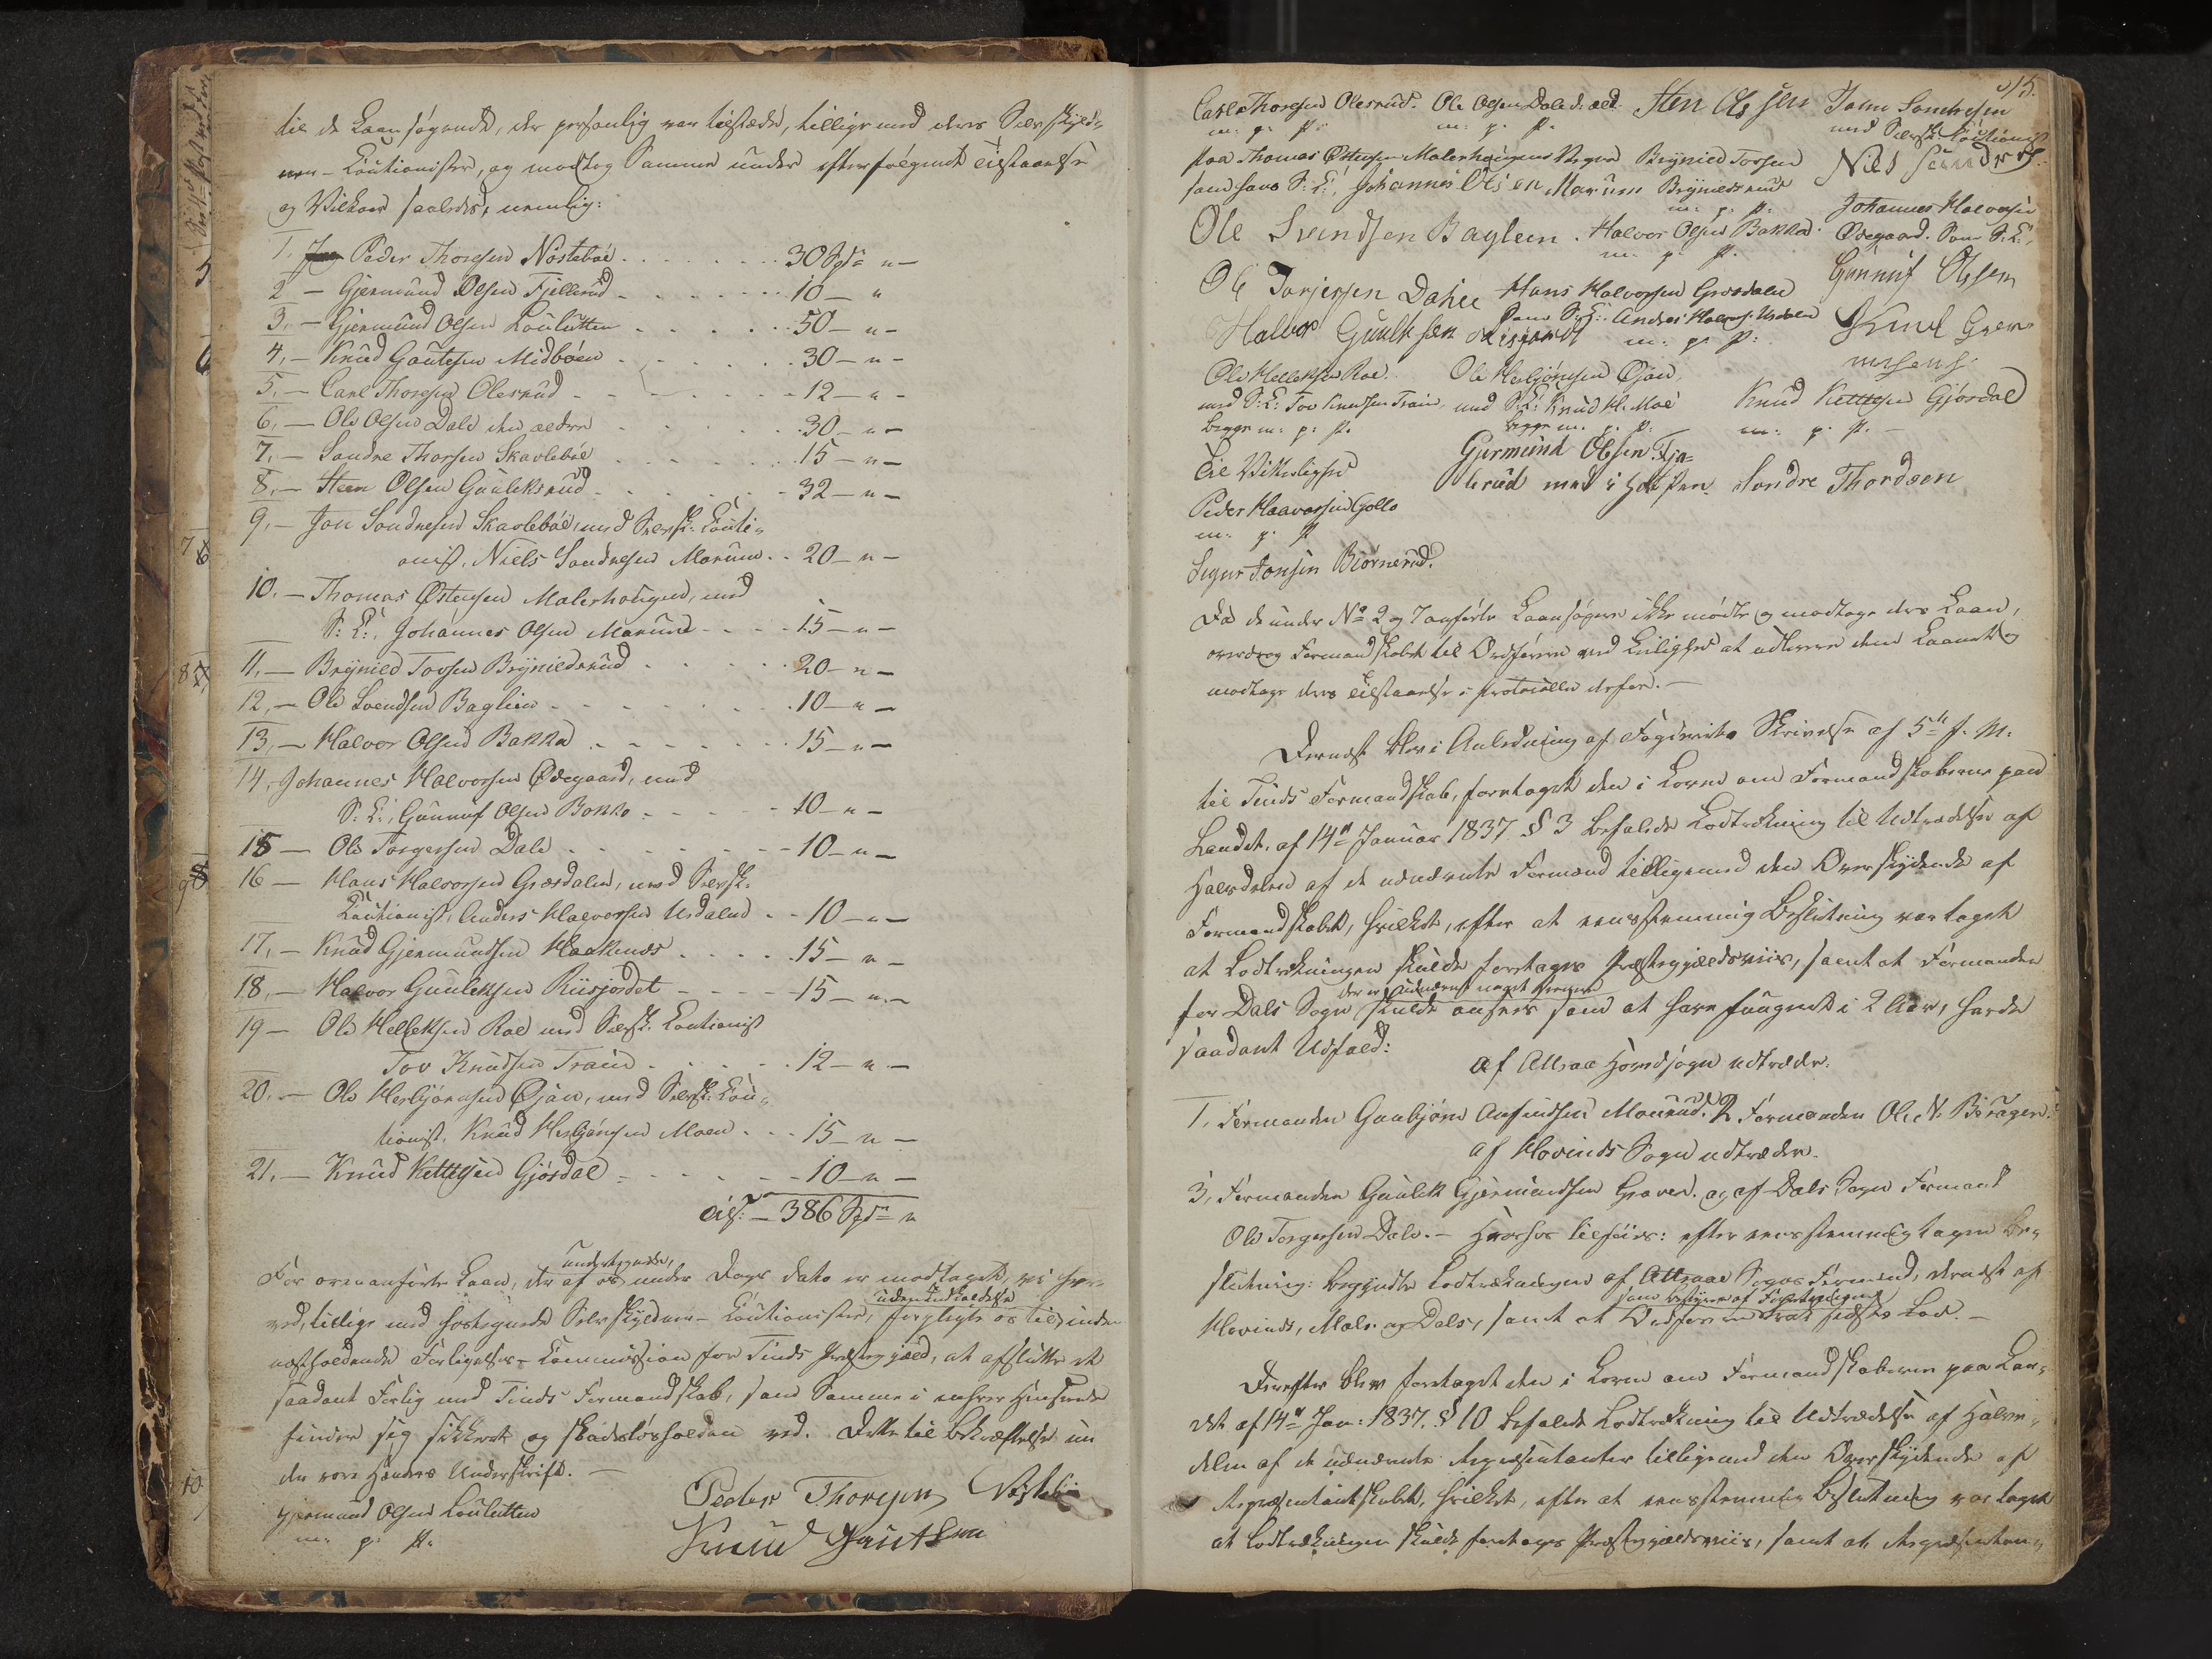 til de Laansøgende, der personlig var tilstæde, tillige med deres Selvskyld-
ner-Cautionister, og modtog Samme under efterfølgende Tilstaaelse
og Vilkaar saaledes, nemlig:
1. Peder Thorsen Nøstebøe 30 Spd "
2 - Gjermund Olsen Fjellerud 10 - "
3. - Gjermund Olsen Loulutten 50 - " -
4. - Knud Gautesen Midbøen 30 - " -
5. - Carl Thorsen Olesrud 12 - " -
6. - Ole Olsen Dale den ældre 30 - " -
7. - Sondre Thorsen Skavlebøe 15 - " -
8. - Steen Olsen Gauleksrud 32 - " -
9. - Jon Sondresen Skavlebøe, med Selvsk: Cauti-
onist, Niels Sondresen Marum 20 - " -
10. - Thomas Østensen Malerhougen, med
S: C:, Johannes Olsen Marum 15 - " -
11. - Brynild Tovsen Brynildsrud 20 - " -
12. - Ole Svendsen Baglien 10 - " -
13. - Halvor Olsen Bakka 15 - " -
14. Johannes Halvorsen Ødegaard, med
S: C:, Gunnuf Olsen Bakka 10 - " -
15 - Ole Torgersen Dale 10 - " -
16 - Hans Halvorsen Græsdalen, med Selvsk:
Cautionist, Anders Halvorsen Urdalen 10 - " -
17. - Knud Gjermundsen Haakenæs 15 - " -
18. - Halvor Gauleksen Riisjordet 15 - " -
19 - Ole Helleksen Roe med Selvsk: Cautionist
Tov Knudsen Traen 12 - " -
20. - Ole Herbjørnsen Øian, med Selvsk: Cau-
tionist, Knud Herbjørnsen Moen 15 - " -
21. - Knud Kettelsen Gjøsdal 10 - " -
Tils: - 386 Spd "
undertegnede,
For ovenanførte Laan, der af os under Dags Dato er modtaget, vi her-
uden Indkaldelse
ved, tillige med hostegnede Selvskyldner-Cautionister, forpligte os til, inden
vedkommende Forligelses-Commission for Tinds Præstegjæld, at afslutte et
saadant Forlig med Tinds Formandskab, som Samme i enhver Henseende
finder sig sikkret og skadesløsholden ved. Dette til Bekræftelse un
der vore Hænders Underskrift. -
Gjermund Olsen Loulutten
m. p. p.
Peder Thorsen Nøstebøe
Knud Gautsen
15.
Carl Thorsen Olesrud. Ole Olsen Dale d. æld. Sten Olssen Jonn Sondresen
m: p. p. m: p. p. med Selvsk: Cautionist
paa Thomas Østensen Malerhougens Vegne Brynild Tovsen Nils Sunders.
som hans S: C:, Johannes Olsen Marum Brynildsrud
m: p. p: Johannes Halvorsen
Ole Svendsen Baglien. Halvor Olsen Bakka. Ødegaard. Som S: C:,
m. p. p. Gunnuf Olssen
Ole Torjersen Dahle Hans Halvorsen Græsdalen
som S: C: Anders Halvors. Urdalen
Halvor Gaulksen Risjordt m: p. p: Knud Gjer-
Ole Helleksen Roe. Ole Herbjørnsen Øian, munsens
med S: C: Tov Knudsen Traen, med S: C: Knud H. Moe Knud Kettelsen Gjøsdal
begge m: p. p. begge m. p. p. m: p. p. -
Til Vitterlighed Gurmund Olsen Fja-
lerud med i holden pen. Sondre Thordsen
Peder Haavorsen Gollo
m. p. p
Segur Jonsen Biørnerud.
Da de under No 2 og 7 anførte Laansøgere ikke mødte og modtage deres Laan,
overdrog Formandskabet til Ordføreren ved Leilighed at udlevere dem Laanet og
modtage deres Tilstaaelse i Protocollen derfor. -
Dernæst blev i Anledning af Fogderiets Skrivelse af 5te f. M.
til Tinds Formandskab, foretaget den i Loven om Formandskaberne paa
Landet, af 14de Januar 1837. § 3 befalede Lodtrækning til Udtrædelse af
Halvdelen af de udnævnte Formænd tilligemed den Overskydende af
Formandskabet, hvilket, efter at eensstemmig Beslutning var taget
at Lodtrækningen skulde foretages Præstegjældsviis, samt at Formanden
for Dals Sogn skulde ansees som at have fungeret i 2 Aar, havde
saadant Udfald:
af Attraa Hovedsogn udtræder:
1, Formanden Gunbjørn Anfindsen Maurud. 2 Formanden Ole N. Børagen.
af Hovinds Sogn udtræder.
3, Formanden Gaulek Gjermundsen Graver. og af Dals Sogn Formand
Ole Torgersen Dale. - Hvorhos tilføies: efter eensstemmig tagen Be-
slutning: begyndte Lodtrækningen af Attraae Sogns Formænd, dernæst af
som bestyrer af Forretningen
Hovinds, Mæls og Dals, samt at Ordføreren trak sidste Lod. -
Derefter blev foretaget den i Loven om Formandskaberne paa Lan-
det af 14de Jan: 1837. § 10 befalede Lodtrækning til Udtrædelse af Halv-
delen af de udnævnte Repræsentanter tilligemed den Overskydende af
Repræsentantskabet, hvilket, efter at eensstemmig Beslutning var taget
at Lodtrækningen skulde foretages Præstegjældsviis, samt at Repræsentan-